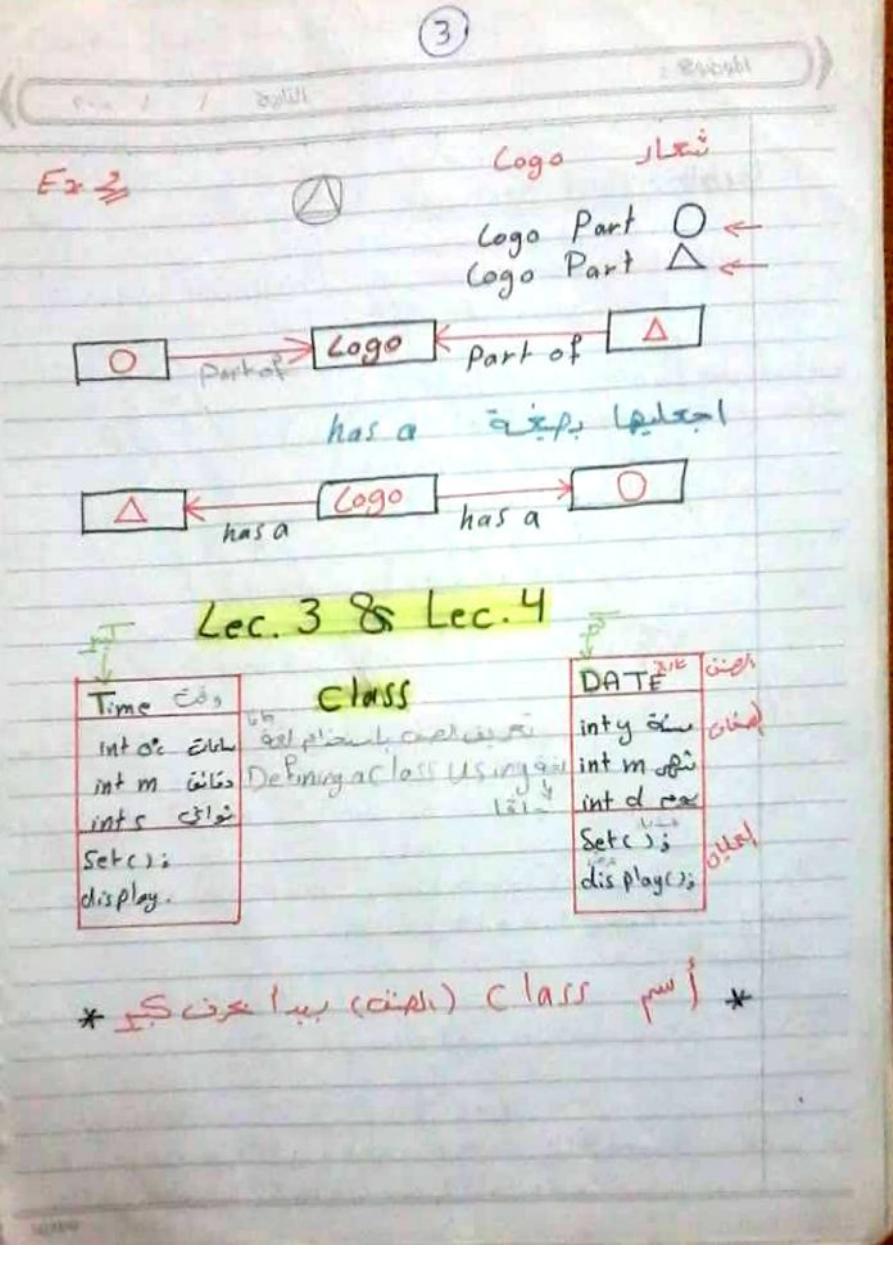 3
الموضوع :
التاريخ / /
Ex 2
شعار Logo
Logo Part
Logo Part
Logo
Part of
Part of
اجعليها بصيغة has a
Logo
has a
has a
Lec. 3 & Lec. 4
class
Time وقت
int ساعات
int m دقائق
int s ثواني
Set();
display.
تعريف الصنف باستخدام لغة جافا
Defining a Class Using
DATE تاريخ
الصنف
int y سنة
int m شهر
int d يوم
الصفات
Set();
display();
* أسم class (الصنف) يبدأ بحرف كبير *